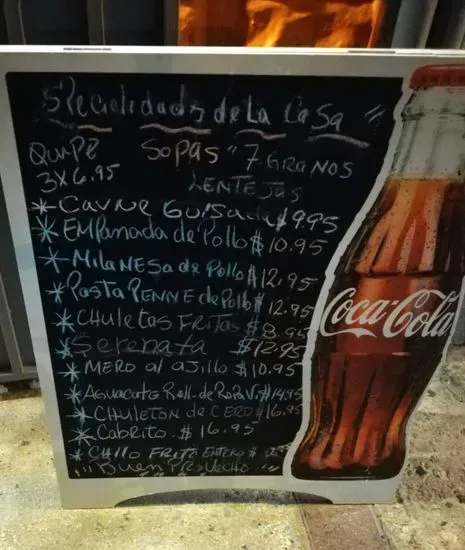 Specialidads de La CaSa "
QuipE Sopas " 7 GRaNOS
3X6.95 LENTEJas
* CaRNE GuiSada $9.95
* EMPaNada de Pollo $10.95
* MilaNESa de Pollo $12.95
* Pasta PENNE de Pollo $12.95
* CHuletas FRitas $8.95
* Serenata $12.95
* MERO al ajillo $10.95
* Aguacate Roll-de RoPa V. $14.95
* CHuLETON de CERDO $16.95
* CabRito $16.95
* CHillo FRito ENtero $
¡¡¡ BuEN PRoVecHo !!!
Coca-Cola